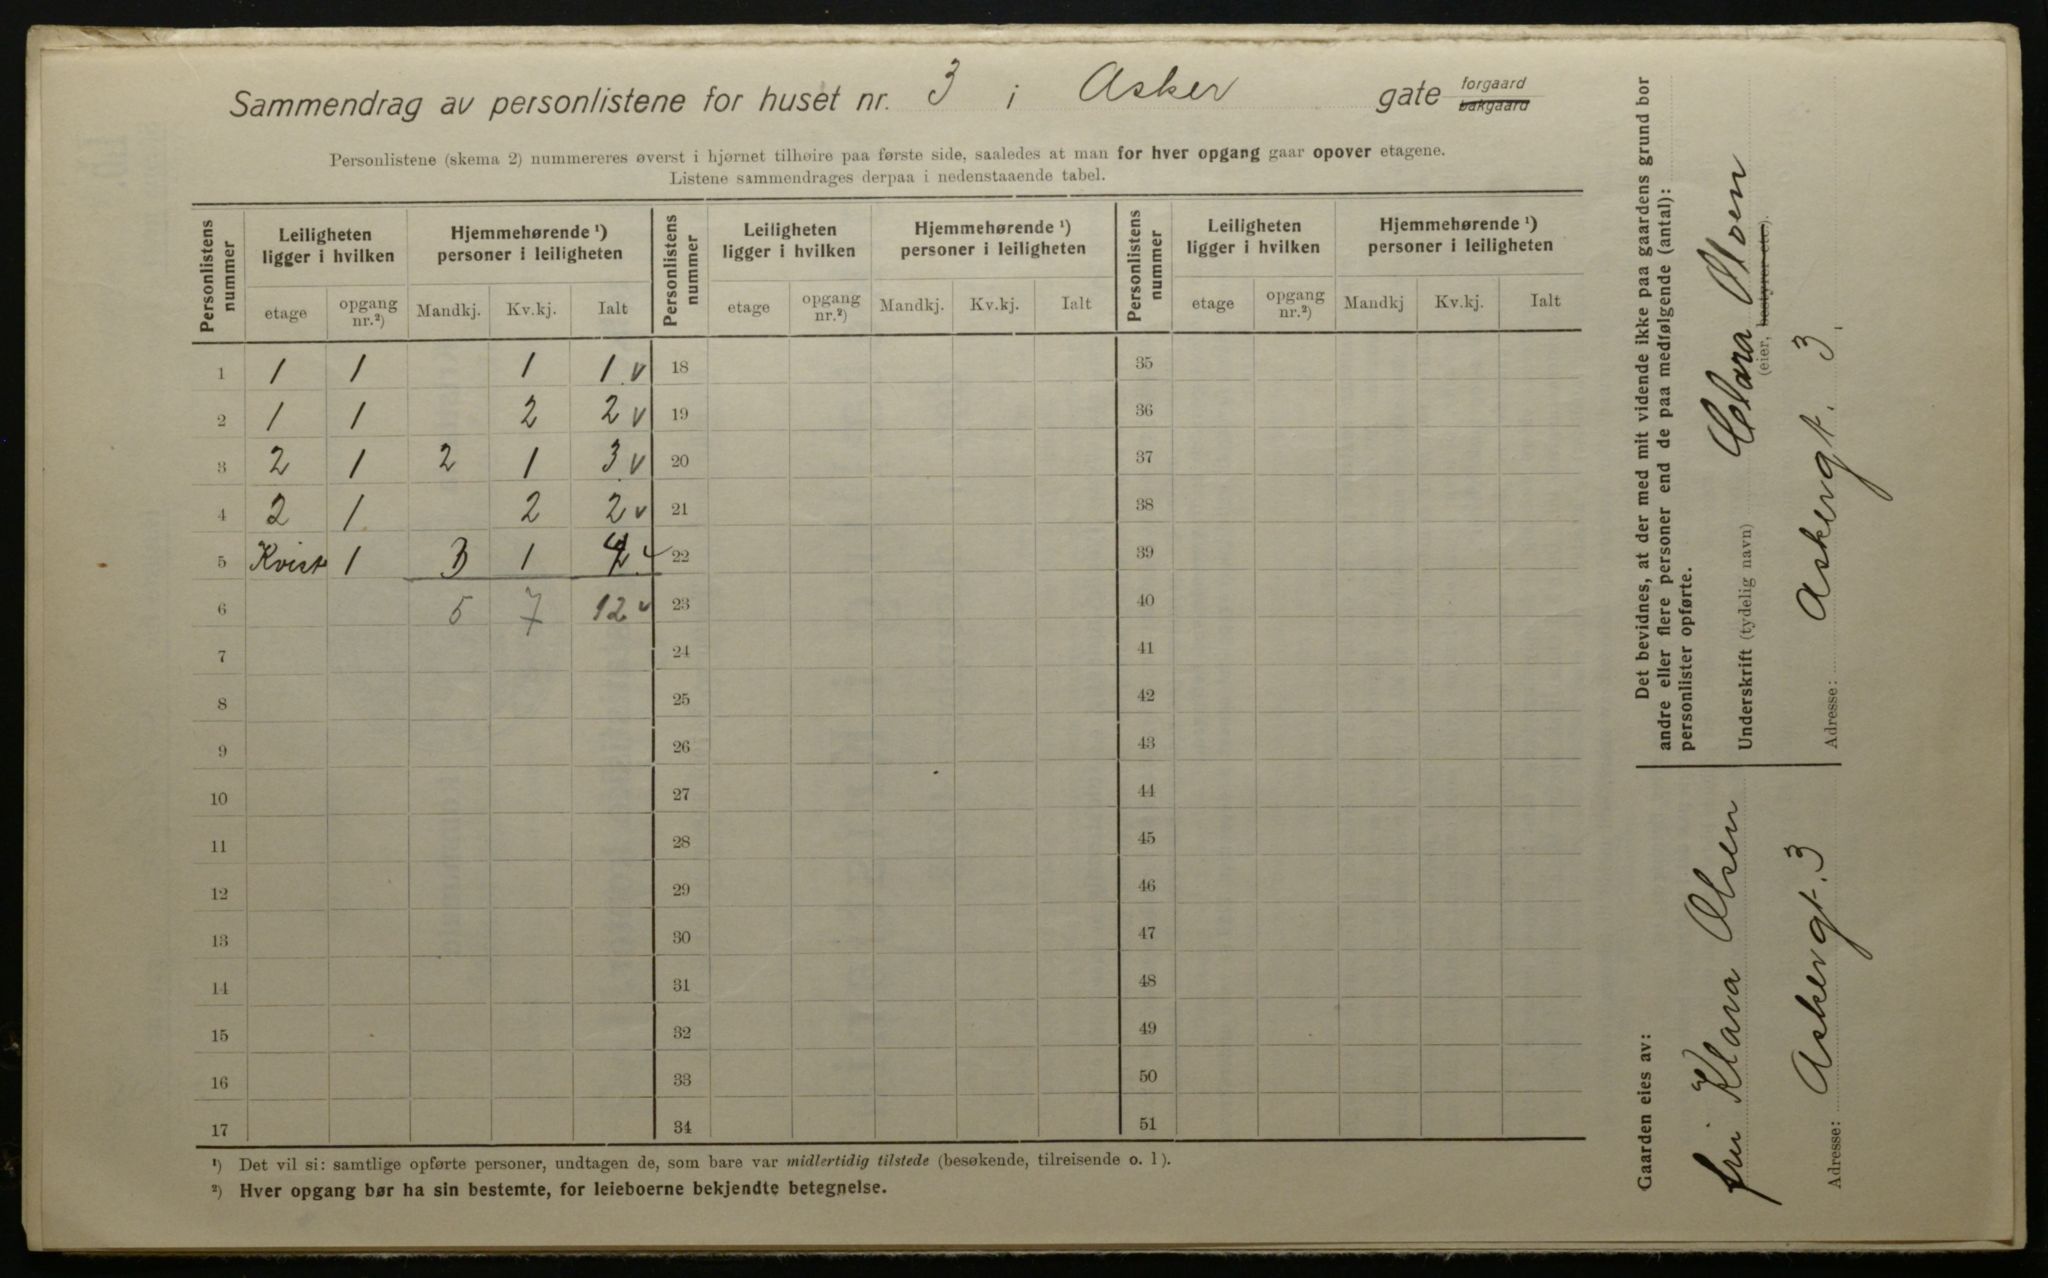 Sammendrag av personlistene for huset nr. 3 i Asker gate forgaard bakgaard
Personlistene (skema 2) nummereres øverst i hjørnet tilhøire paa første side, saaledes at man for hver opgang gaar opover etagene.
Listene sammendrages derpaa i nedenstaaende tabel.
Personlistens nummer | Leiligheten ligger i hvilken | Hjemmehørende ¹) personer i leiligheten | Personlistens nummer | Leiligheten ligger i hvilken | Hjemmehørende ¹) personer i leiligheten | Personlistens nummer | Leiligheten ligger i hvilken | Hjemmehørende ¹) personer i leiligheten
etage | opgang nr.²) | Mandkj. | Kv.kj. | Ialt | etage | opgang nr.²) | Mandkj. | Kv.kj. | Ialt | etage | opgang nr.²) | Mandkj | Kv.kj. | Ialt
1 | 1 | 1 | | 1 | 1 v | 18 | 35
2 | 1 | 1 | | 2 | 2 v | 19 | 36
3 | 2 | 1 | 2 | 1 | 3 v | 20 | 37
4 | 2 | 1 | | 2 | 2 v | 21 | 38
5 | Kvist | 1 | 3 | 1 | 4 v | 22 | 39
6 | | | 5 | 7 | 12 v | 23 | 40
7 | 24 | 41
8 | 25 | 42
9 | 26 | 43
10 | 27 | 44
11 | 28 | 45
12 | 29 | 46
13 | 30 | 47
14 | 31 | 48
15 | 32 | 49
16 | 33 | 50
17 | 34 | 51
¹) Det vil si: samtlige opførte personer, undtagen de, som bare var midlertidig tilstede (besøkende, tilreisende o. l).
²) Hver opgang bør ha sin bestemte, for leieboerne bekjendte betegnelse.
Det bevidnes, at der med mit vidende ikke paa gaardens grund bor
andre eller flere personer end de paa medfølgende (antal):
personlister opførte.
Underskrift (tydelig navn) Clara Moen
(eier, bestyrer etc).
Adresse: Askergt. 3.
Gaarden eies av:
fru Klara Olsen
Adresse: Askergt. 3